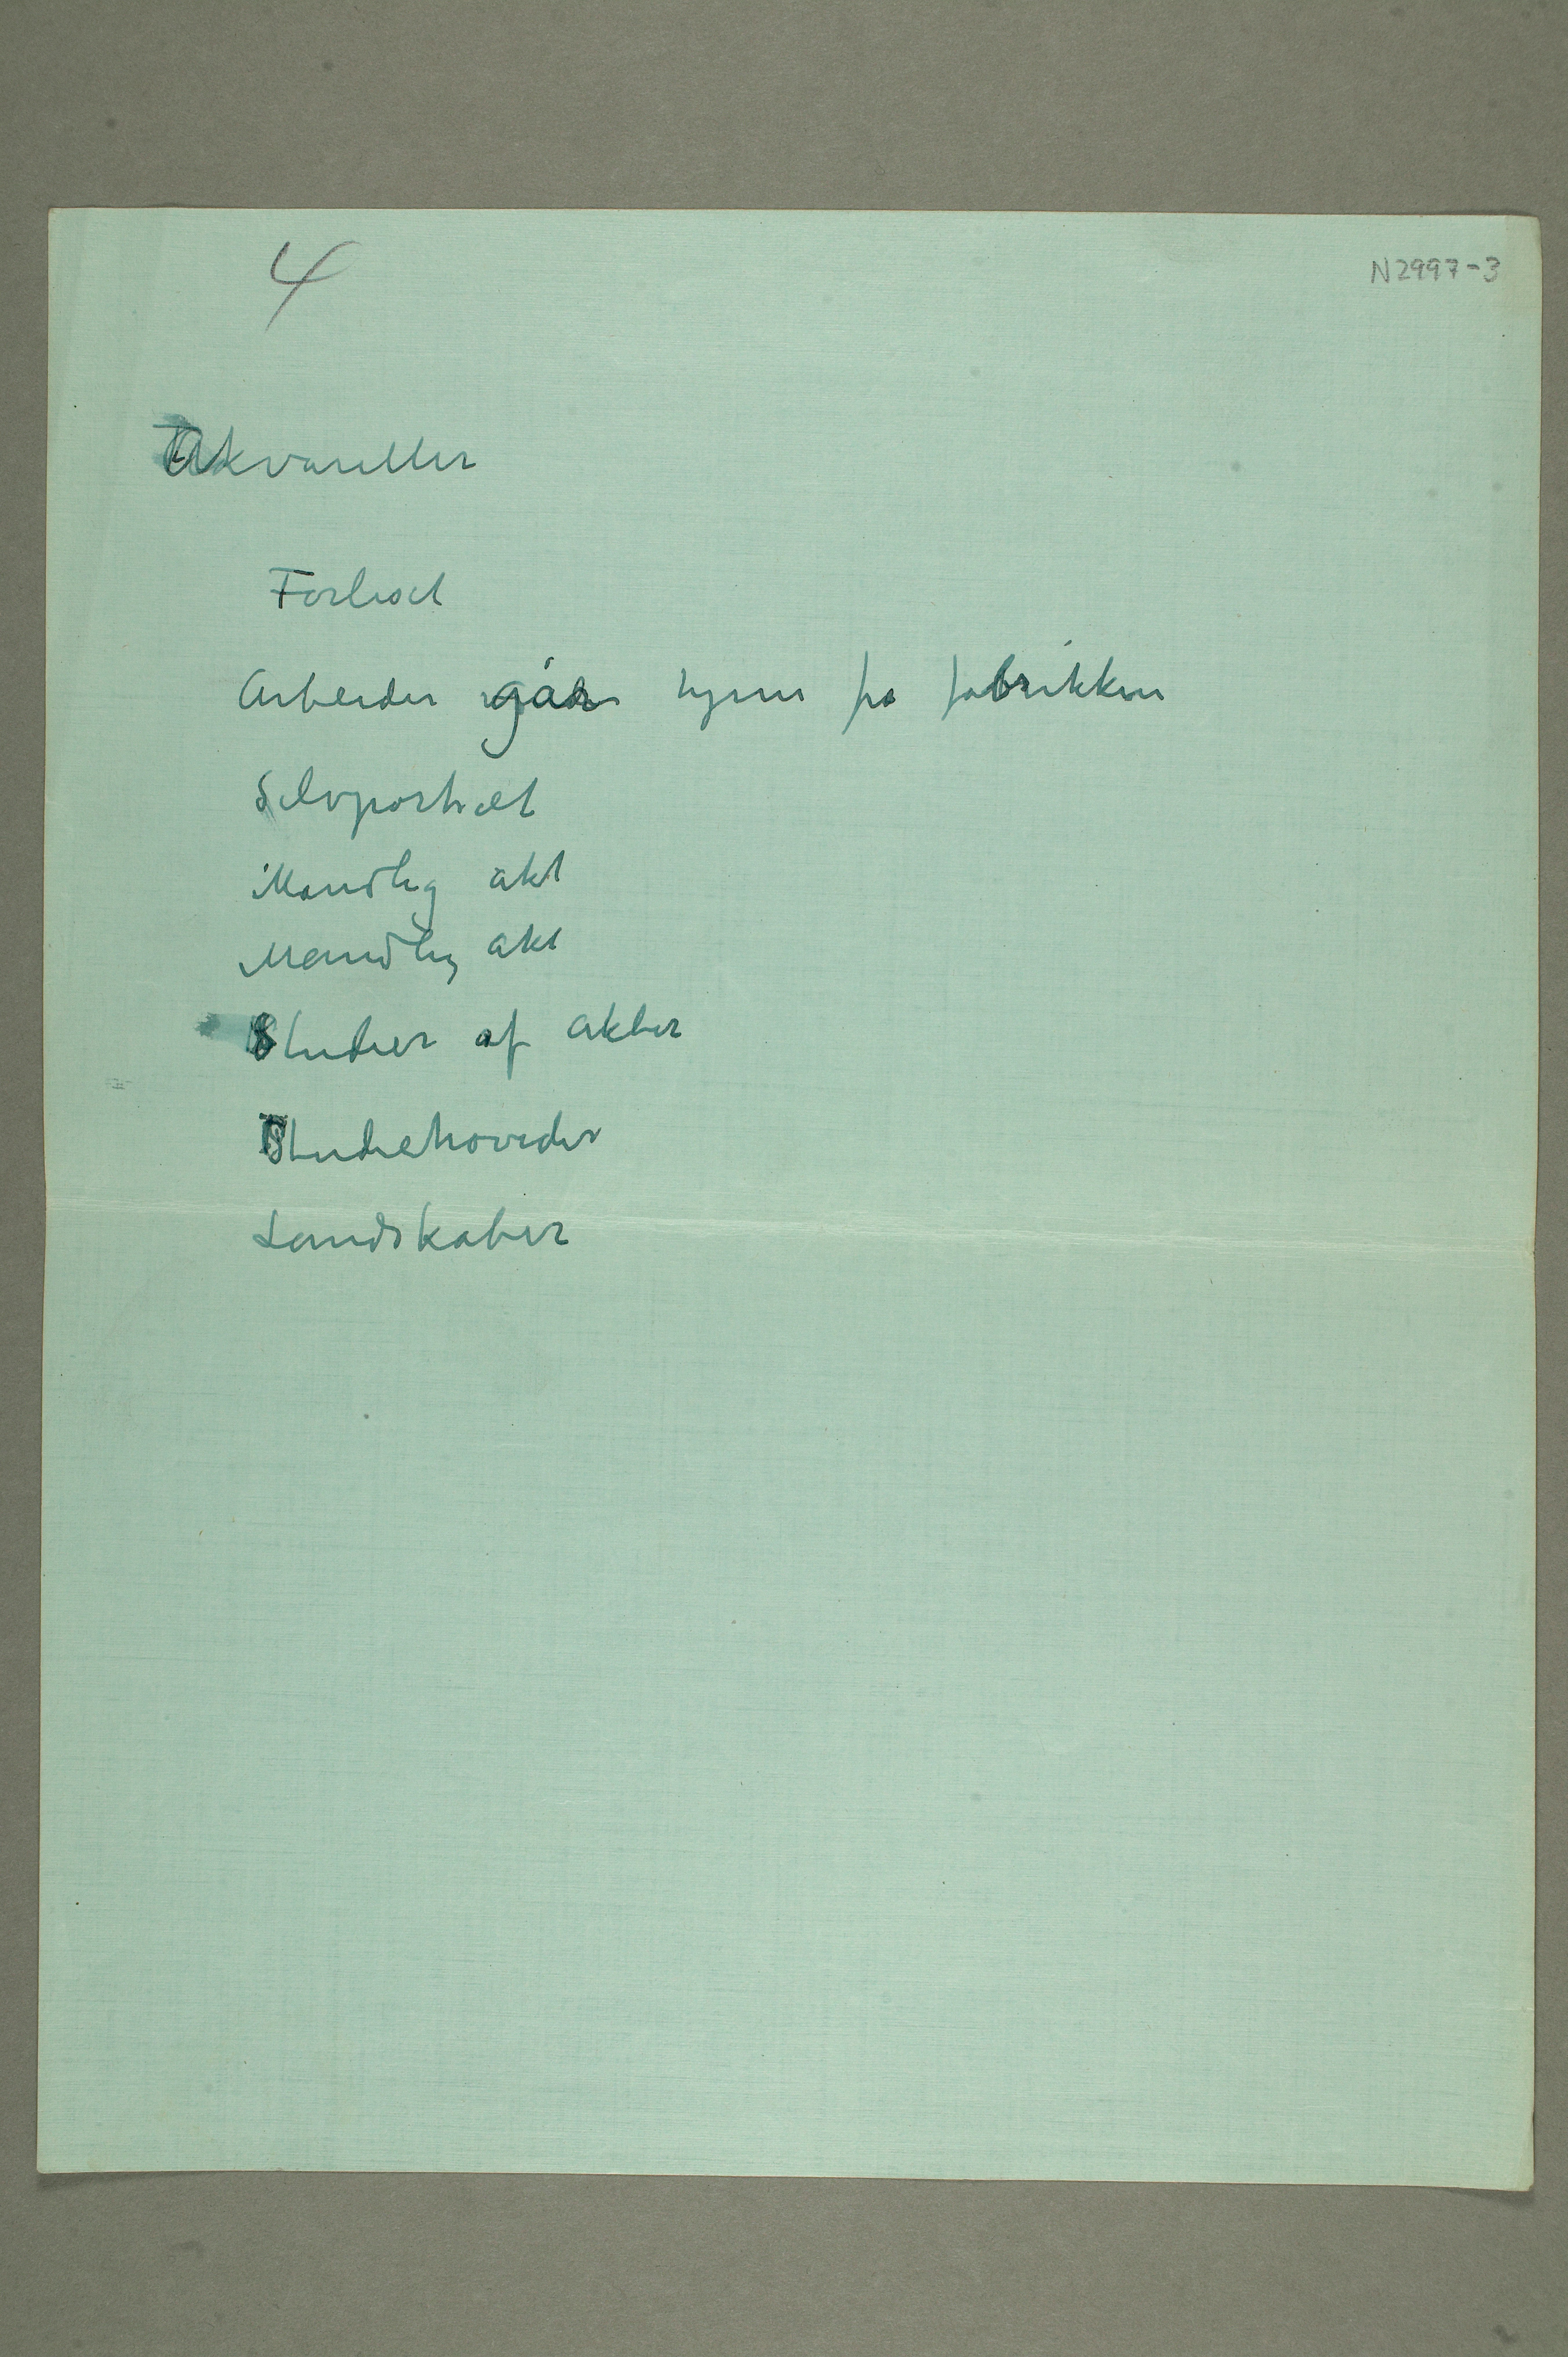 4
N2997-3
Akvareller
Forliset
Arbeider går hjem fra fabrikken
Selvportræt
Mandlig akt
Mandlig akt
Studier af akter
Studiehoveder
Landskaber